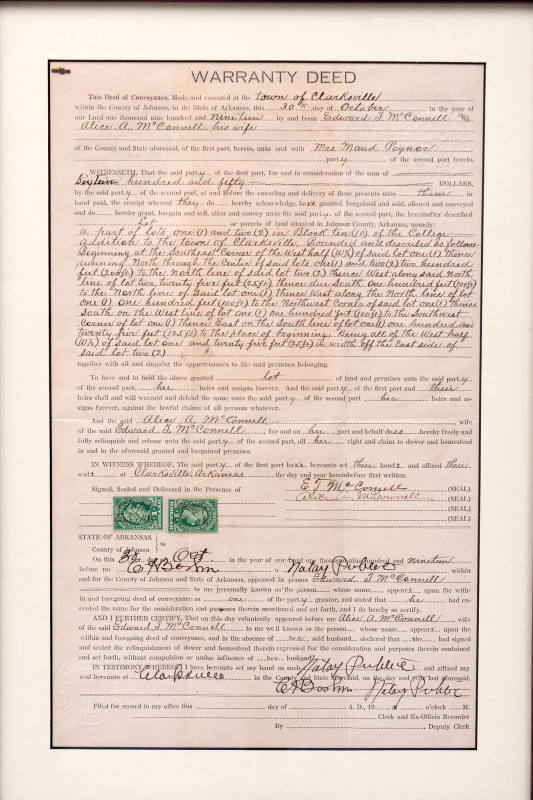 WARRANTY DEED
This Deed of Conveyance, Made and executed at the town of Clarksville
within the County of Johnson, in the State of Arkansas, this 30th day of October in the year of
our Lord one thousand nine hundred and nineteen by and from Edward T. McConnell and
Alice A. McConnell, his wife
of the County and State aforesaid, of the first part, hereto, unto and with Mrs. Maud Poynor
party of the second part hereto,
WITNESSETH, That the said party of the first part, for and in consideration of the sum of
Sixteen hundred and fifty DOLLARS,
by the said party of the second part, at and before the ensealing and delivery of these presents unto them in
hand paid, the receipt whereof they do hereby acknowledge, have granted, bargained and sold, aliened and conveyed
and do hereby grant, bargain and sell, alien and convey unto the said party of the second part, the hereinafter described
Lot or parcels of land situated in Johnson County, Arkansas, namely:
a part of lots one (1) and two (2) in Block ten (10) of the College
addition to the town of Clarksville, Bounded and described as follows:
Beginning at the southeast Corner of the West half (W½) of said lot one (1) thence
running North through the Center of said lots one (1) and two (2) two hundred
feet (200ft) to the North line of said lot two (2) thence West along said North
line of lot two, twenty five feet (25ft) thence due South one hundred feet (100ft)
to the North line of said lot one (1) thence West along the North line of lot
one (1) one hundred feet (100ft) to the Northwest Corner of said lot one (1) thence
south on the West line of lot one (1) one hundred feet (100ft) to the Southwest
Corner of lot one (1) thence East on the South line of lot one (1) one hundred and
twenty five feet (125ft) to the place of beginning. Being all of the West half
(W½) of said lot one and twenty five feet (25ft) in width off the East side of
said lot two (2)
together with all and singular the appurtenances to the said premises belonging.
To have and to hold the above granted lot of land and premises unto the said party
of the second part, her heirs and assigns forever. And the said party of the first part and their
heirs shall and will warrant and defend the same unto the said party of the second part her heirs and as-
signs forever, against the lawful claims of all persons whatever.
And the said Alice A. McConnell wife
of the said Edward T. McConnell, for and on her part and behalf does hereby freely and
fully relinquish and release unto the said party of the second part, all her right and claim to dower and homestead
in and to the aforesaid granted and bargained premises.
IN WITNESS WHEREOF, The said party of the first part have hereunto set their hands, and affixed their
seals at Clarksville, Arkansas the day and year hereinbefore first written.
Signed, Sealed and Delivered in the Presence of E T McConnell (SEAL)
Alice A McConnell (SEAL)
(SEAL)
(SEAL)
STATE OF ARKANSAS
County of Johnson ss
On this Oct in the year of our Lord one thousand nine hundred and nineteen
before me a Notary Public within
and for the County of Johnson and State of Arkansas, appeared in person Edward T. McConnell
to me personally known as the person whose name appears upon the with-
in and foregoing deed of conveyance as one of the party grantor, and stated that he had ex-
ecuted the same for the consideration and purposes therein mentioned and set forth, and I do hereby so certify.
AND I FURTHER CERTIFY, That on this day voluntarily appeared before me Alice A. McConnell wife
of the said Edward T. McConnell to me well known as the person whose name appears upon the
within and foregoing deed of conveyance, and in the absence of her said husband declared that she had signed
and sealed the relinquishment of dower and homestead therein expressed for the consideration and purposes therein contained
and set forth, without compulsion or undue influence of her husband.
IN TESTIMONY WHEREOF, I have hereunto set my hand as such Notary Public and affixed my
seal hereunto at in the County and State aforesaid, on the day and year last aforesaid.
Notary Public
Filed for record in my office this day of A. D., 19 at o'clock M.
Clerk and Ex-Officio Recorder
By Deputy Clerk